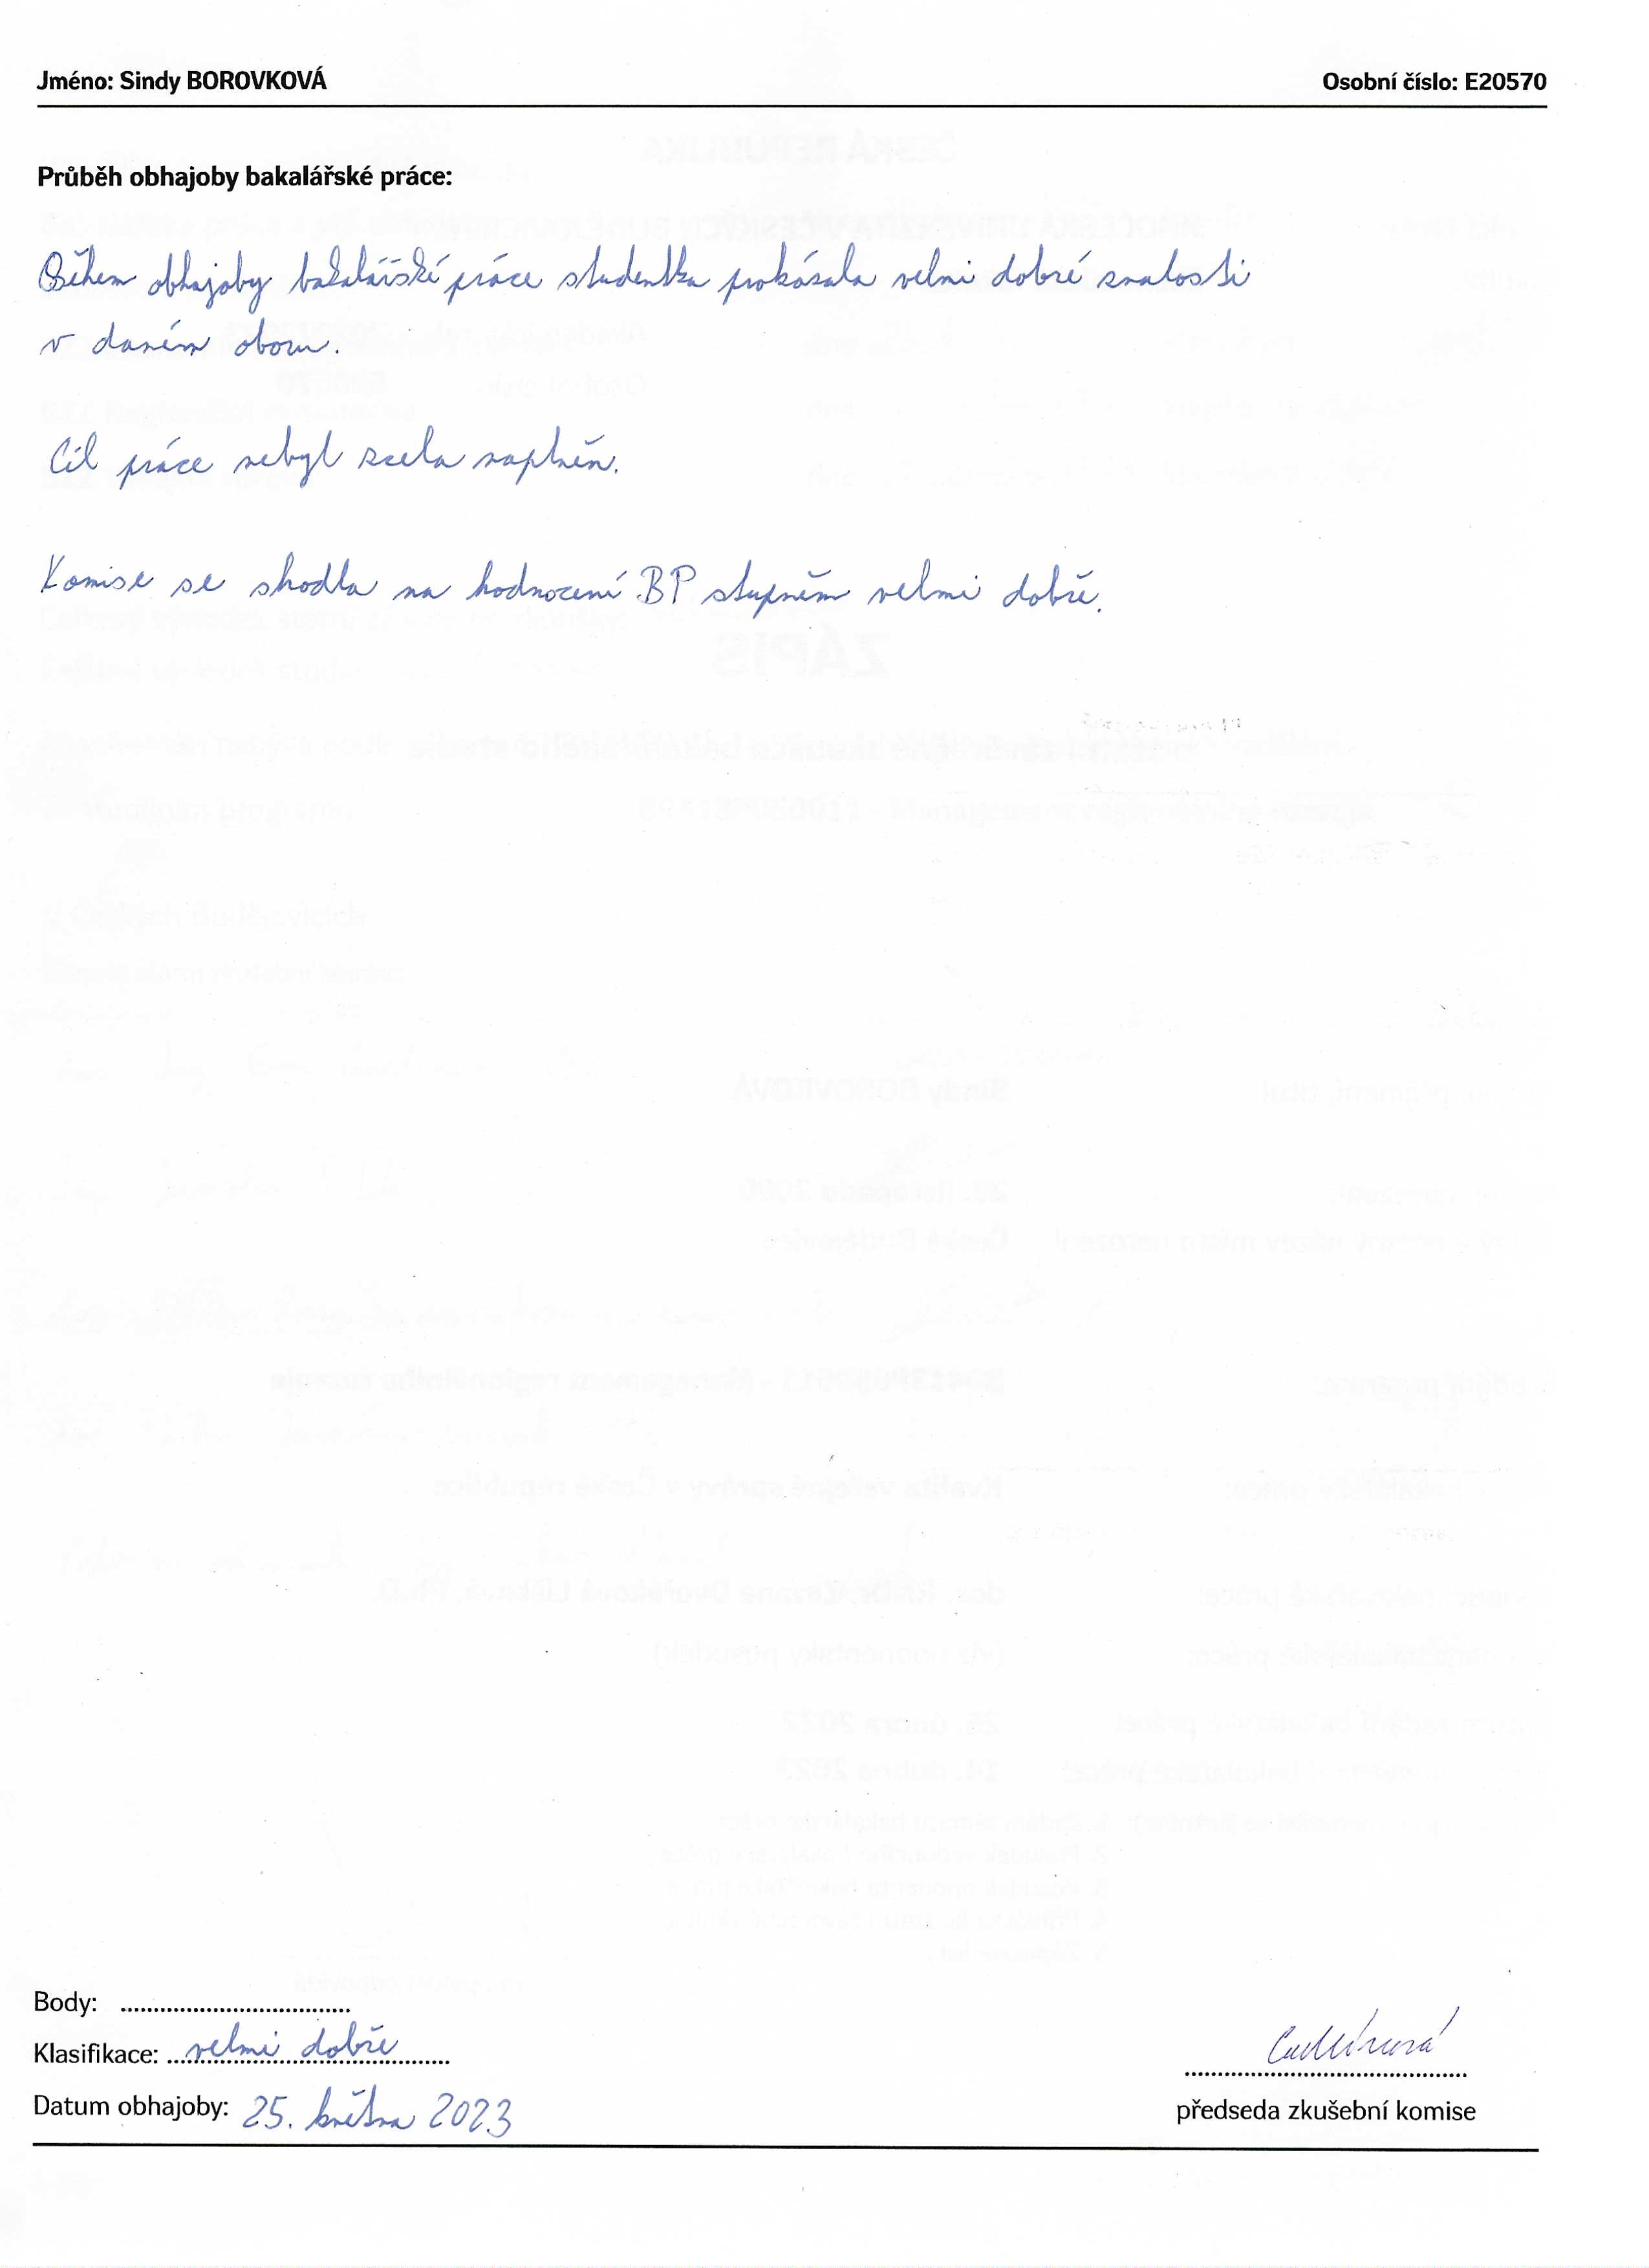 Jméno: Sindy BOROVKOVÁ Osobní číslo: E20570
Průběh obhajoby bakalářské práce:
Během obhajoby bakalářské práce studentka prokázala velmi dobré znalosti
v daném oboru.
Cíl práce nebyl zcela naplněn.
Komise se shodla na hodnocení BP stupněm velmi dobře.
Body: ...................................
Klasifikace: velmi dobře
Datum obhajoby: 25. května 2023
předseda zkušební komise